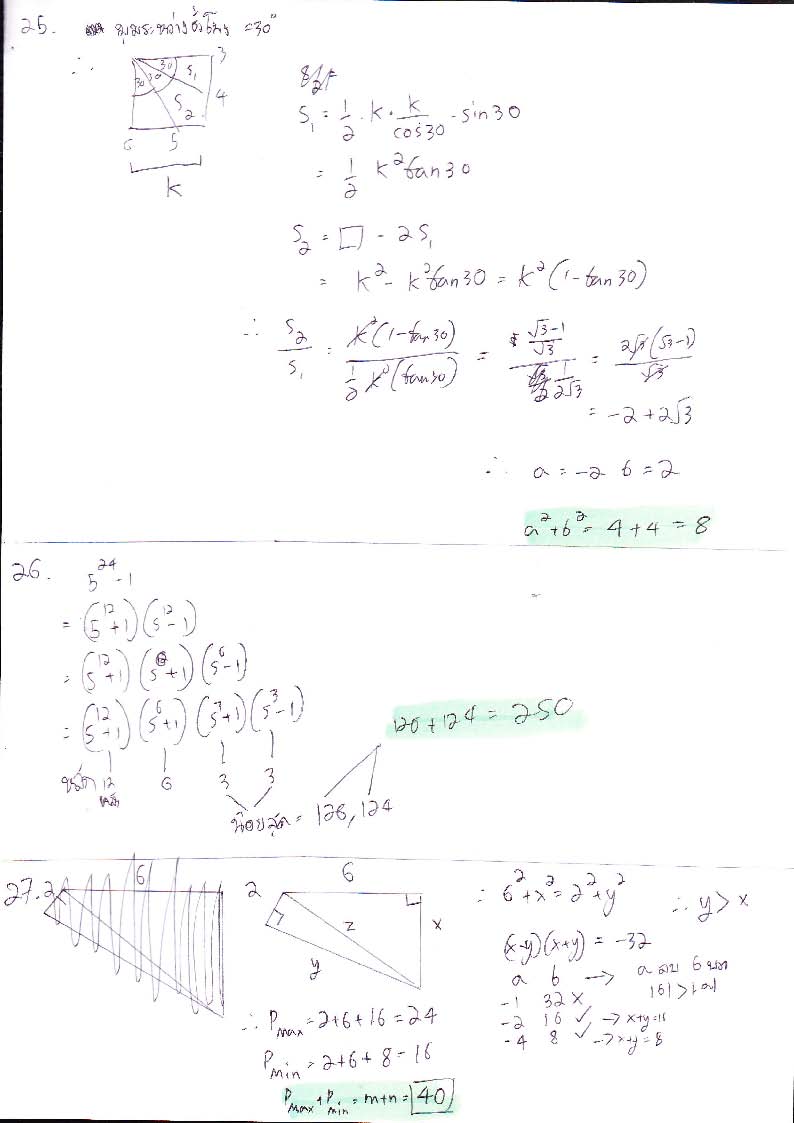 25. มุมระหว่างชั่วโมง = 30°
∴
30 3
30 30 S₁
S₂ 4
6 5
k
S₁ = 1/2 · k · k/cos30 · sin30
= 1/2 k² tan30
S₂ = □ - 2S₁
= k² - k² tan30 = k²(1 - tan30)
∴ S₂/S₁ = k²(1 - tan30) / (1/2 k²(tan30)) = ((√3-1)/√3) / (1/(2√3)) = 2√3(√3-1)/√3
= -2 + 2√3
∴ a = -2 b = 2
a² + b² = 4 + 4 = 8
26. 5²⁴ - 1
= (5¹² + 1)(5¹² - 1)
= (5¹² + 1)(5⁶ + 1)(5⁶ - 1)
= (5¹² + 1)(5⁶ + 1)(5³ + 1)(5³ - 1)
12 6 3 3
หลัก
น้อยสุด = 126, 124
126 + 124 = 250
27. 2 6
2 6
z x
y
∴ 6² + x² = 2² + y² ∴ y > x
(x-y)(x+y) = -32
a b → a ลบ b บวก
|b| > |a|
-1 32 ×
-2 16 ✓ → x+y=16
-4 8 ✓ → x+y=8
∴ Pmax = 2+6+16 = 24
Pmin = 2+6+8 = 16
Pmax + Pmin = m+n = 40